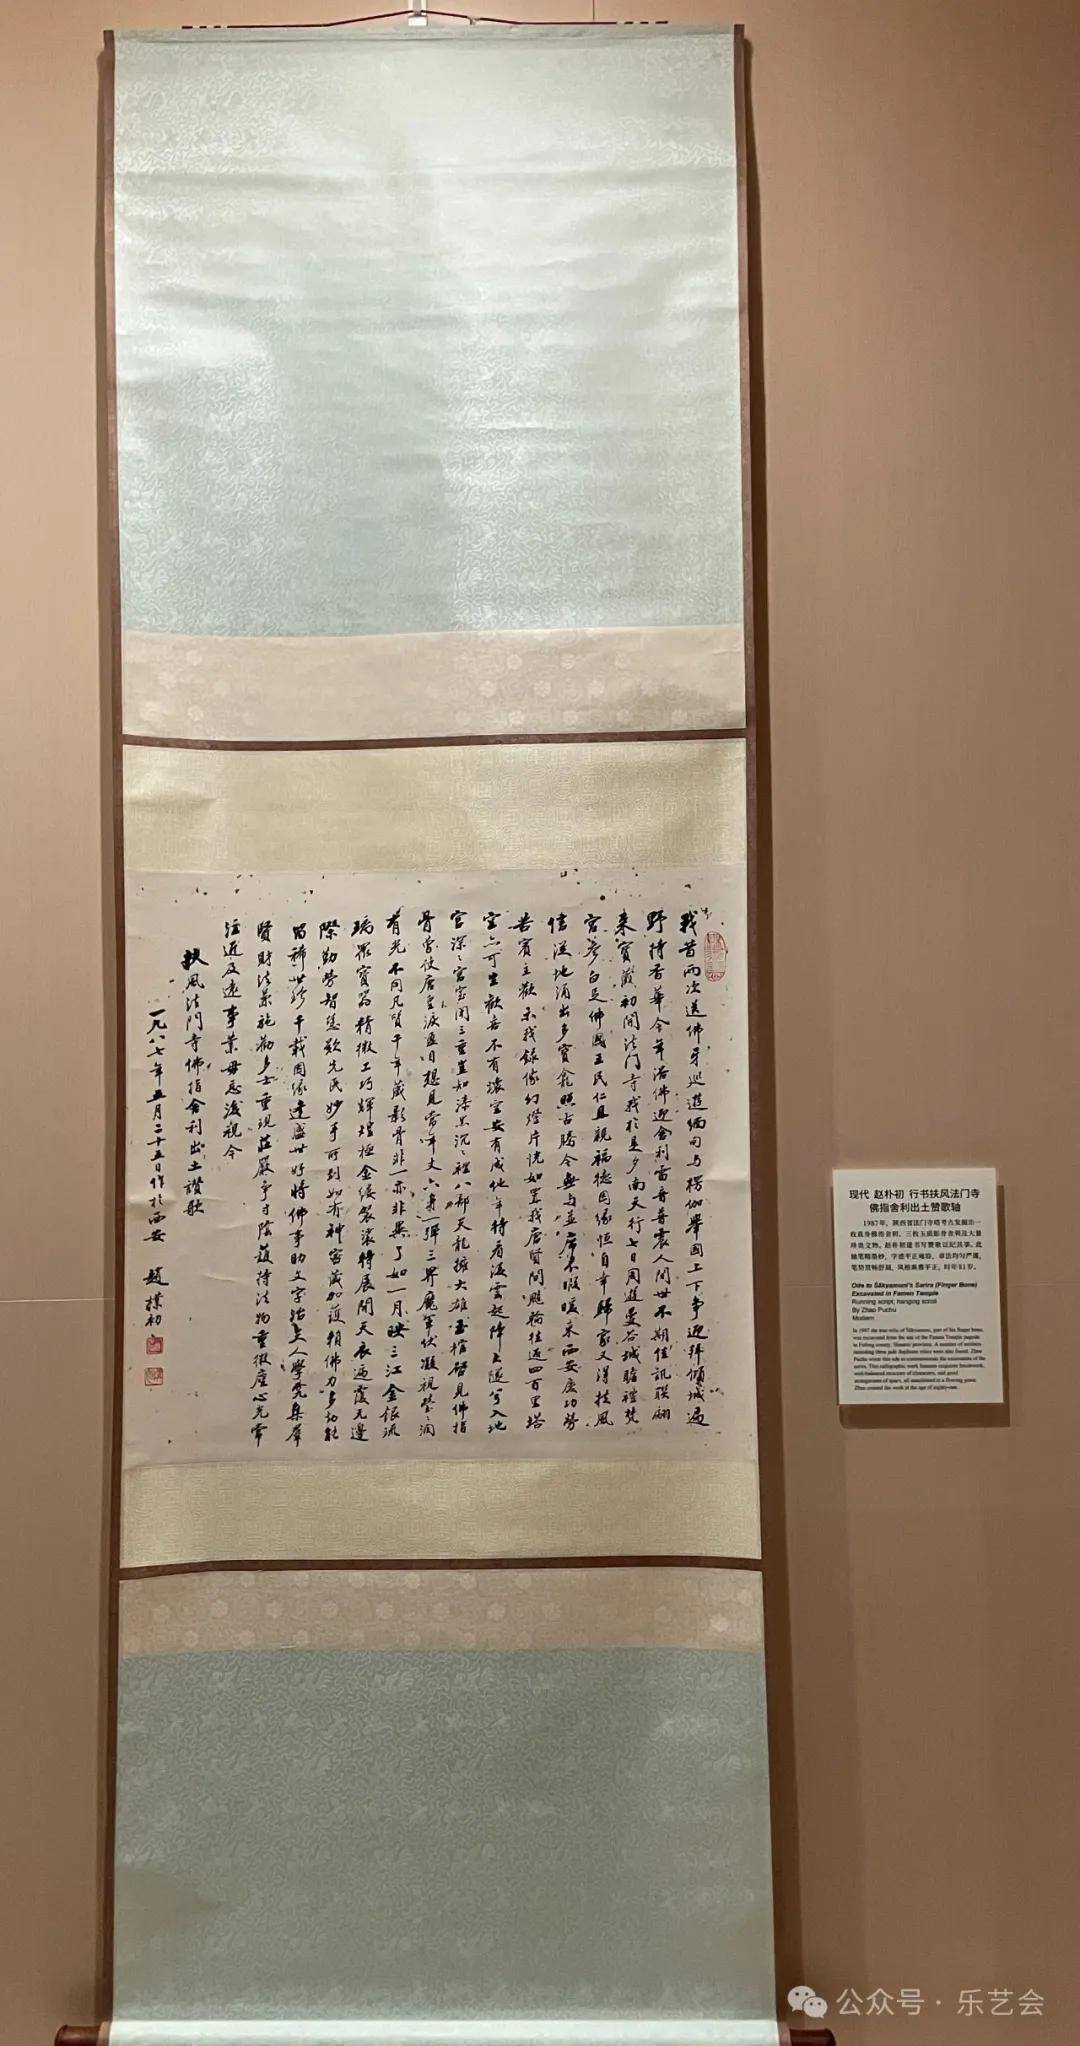 我昔兩次送佛牙巡遊緬甸与楞伽舉國上下爭迎拜傾城遍
野持香華今年活佛迎舍利雷音普震人間世不期佳訊聯翩
来寶藏初開法门寺我於是夕南天行七日周遊曼谷城瞻禮梵
宮参白足佛國王民仁且親福德因緣恒自幸歸家又得扶風
信湿地涌出多寶龕照古騰今無与並席不暇暖来西安慶功勞
苦賓主歡示我錄像幻燈片恍如置我唐賢間飈輪往返四百里塔
宮深深宮室開三重豈知漆黑沉沉裡八部天龍擁大雄玉棺啓見佛指
骨當使唐皇淚盈目想見當年丈六身一彈三界魔軍伏凝視瑩瑩润
有光不同凡質千年藏影骨非一亦非異了如一月映三江金銀琉
璃眾寶器精微工巧輝煌極金縷袈裟特展開天衣遍覆无邊
際勤勞智慧歎先民妙手所到如有神密藏加護賴佛力多劫能
留稀世珍千載因緣逢盛世好將佛事助文字
賢財法兼施勸多士重現莊嚴爭寸陰護持法物重徵座心光常
注近及遠事業毋忘後視今
扶風法門寺佛指舍利出土讚歌
一九八七年五月二十五日作於西安 趙樸初
现代 赵朴初 行书扶风法门寺
佛指舍利出土赞歌轴
1987年，陕西省法门寺塔考古发掘出一
枚真身佛指舍利、三枚玉质影骨舍利及大量
珍贵文物。赵朴初遂书写赞歌以纪其事。此
轴笔精墨妙，字透平正雍容，章法均匀严谨，
笔势贯畅舒展，风格端雅平正，时年81岁。
Ode to Śākyamuni's Sarira (Finger Bone)
Excavated in Famen Temple
Running script, hanging scroll
By Zhao Puchu
Modern
In 1987 the true relic of Śākyamuni, part of his finger bone,
was excavated from the site of the Famen Temple pagoda
in Fufeng county, Shaanxi province. A number of artifacts
including three jade duplicate relics were also found. Zhao
Puchu wrote this ode to commemorate the excavation of the
sarira. This calligraphic work features exquisite brushwork,
well-balanced structure of characters, and good
arrangement of space, all manifested in a flowing grace.
Zhao created the work at the age of eighty-one.
公众号·乐艺会